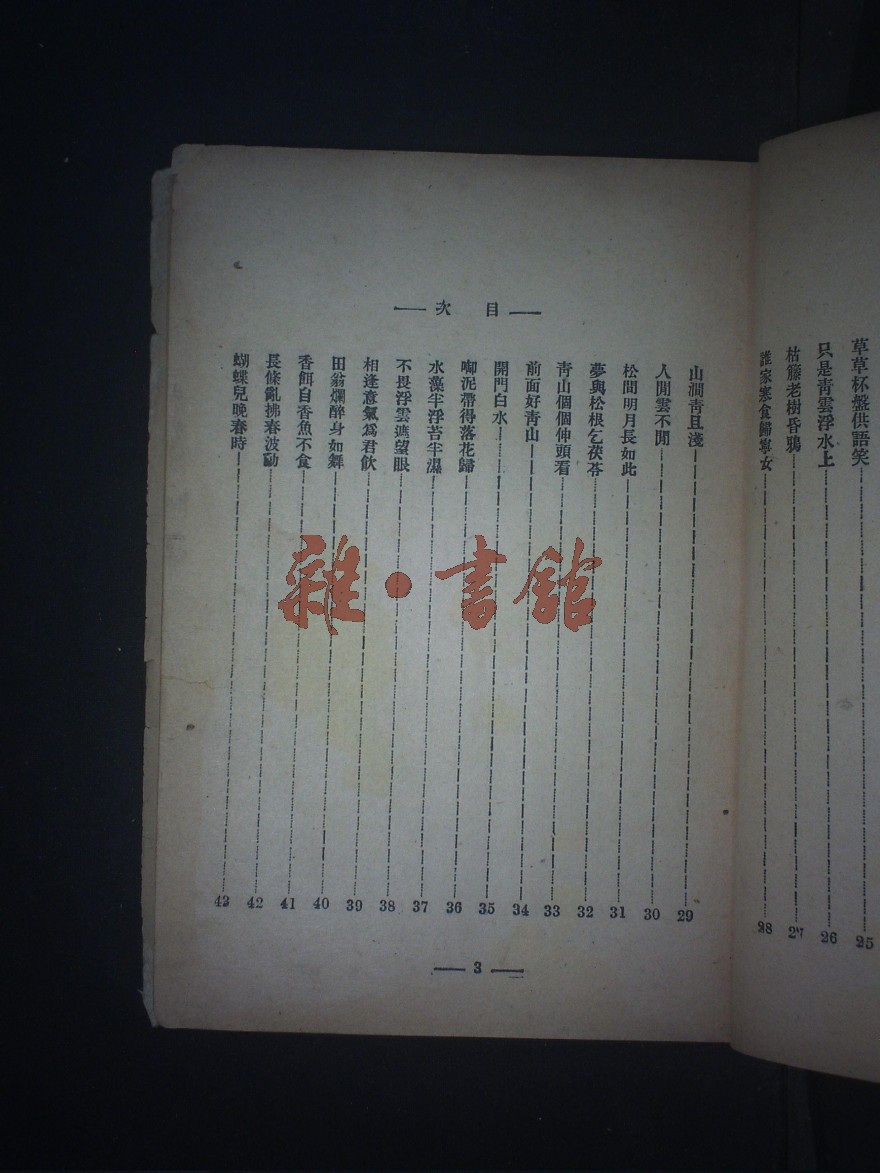 草草杯盤供語笑 25
只是青雲浮水上 26
枯籐老樹昏鴉 27
誰家寒食歸寧女 28
目次
山澗青且淺 29
人閒雲不閒 30
松間明月長如此 31
夢與松根乞茯苓 32
青山個個伸頭看 33
前面好青山 34
開門白水 35
啣泥帶得落花歸 36
水藻半浮苔半濕 37
不畏浮雲遮望眼 38
相逢意氣爲君飲 39
田翁爛醉身如舞 40
香餌自香魚不食 41
長條亂拂春波動 42
蝴蝶兒晚春時 43
3
雜·書館